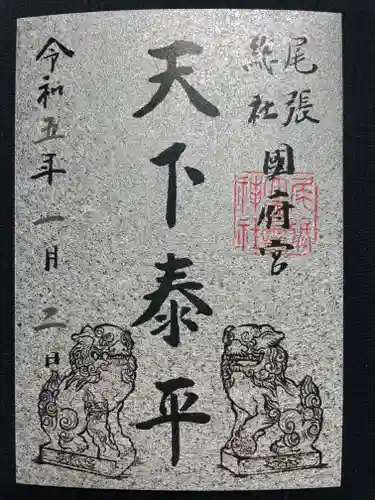 尾張
総社
国府宮
天下泰平
令和五年一月二日